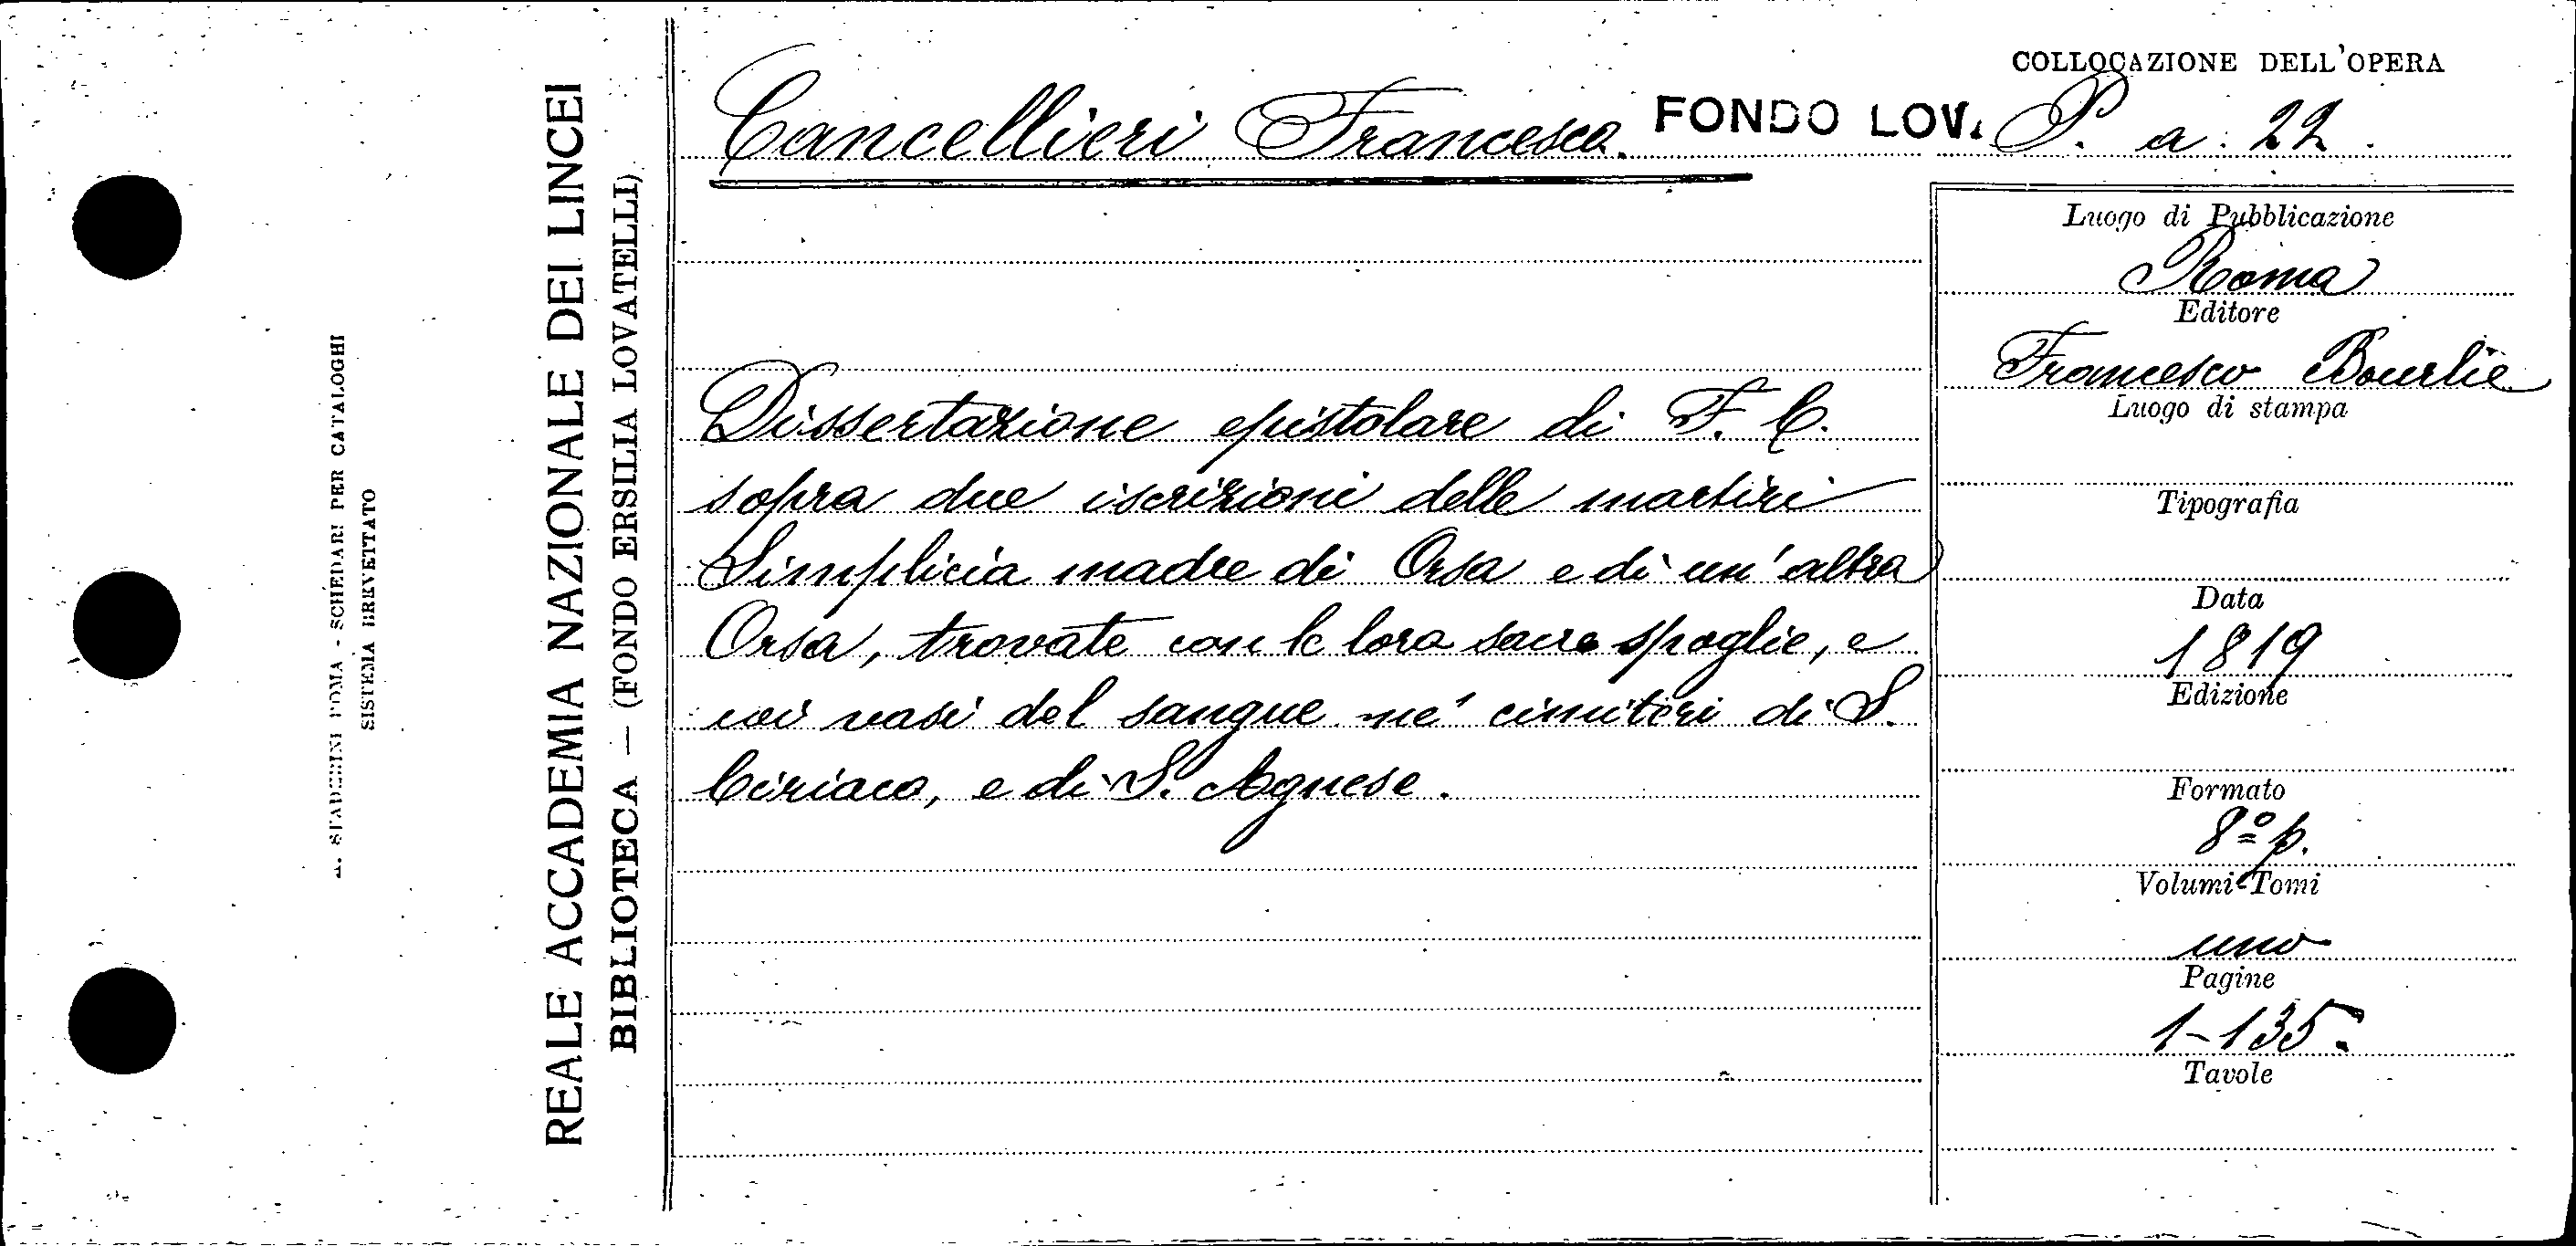 COLLOCAZIONE DELL'OPERA
Cancellieri Francesco. FONDO LOV. P. a. 22.
Dissertazione epistolare di F. C.
sopra due iscrizioni delle martiri
Simplicia madre di Orsa e di un'altra
Orsa, trovate con le loro sacre spoglie, e
coi vasi del sangue ne' cimiteri di S.
Ciriaco, e di S. Agnese.
Luogo di Pubblicazione
Roma
Editore
Francesco Bourlie
Luogo di stampa
Tipografia
Data
1819
Edizione
Formato
8º p.
Volumi-Tomi
uno
Pagine
1-135.
Tavole
REALE ACCADEMIA NAZIONALE DEI LINCEI
BIBLIOTECA — (FONDO ERSILIA LOVATELLI)
STADERINI ROMA - SCHEDARI PER CATALOGHI
SISTEMA BREVETTATO